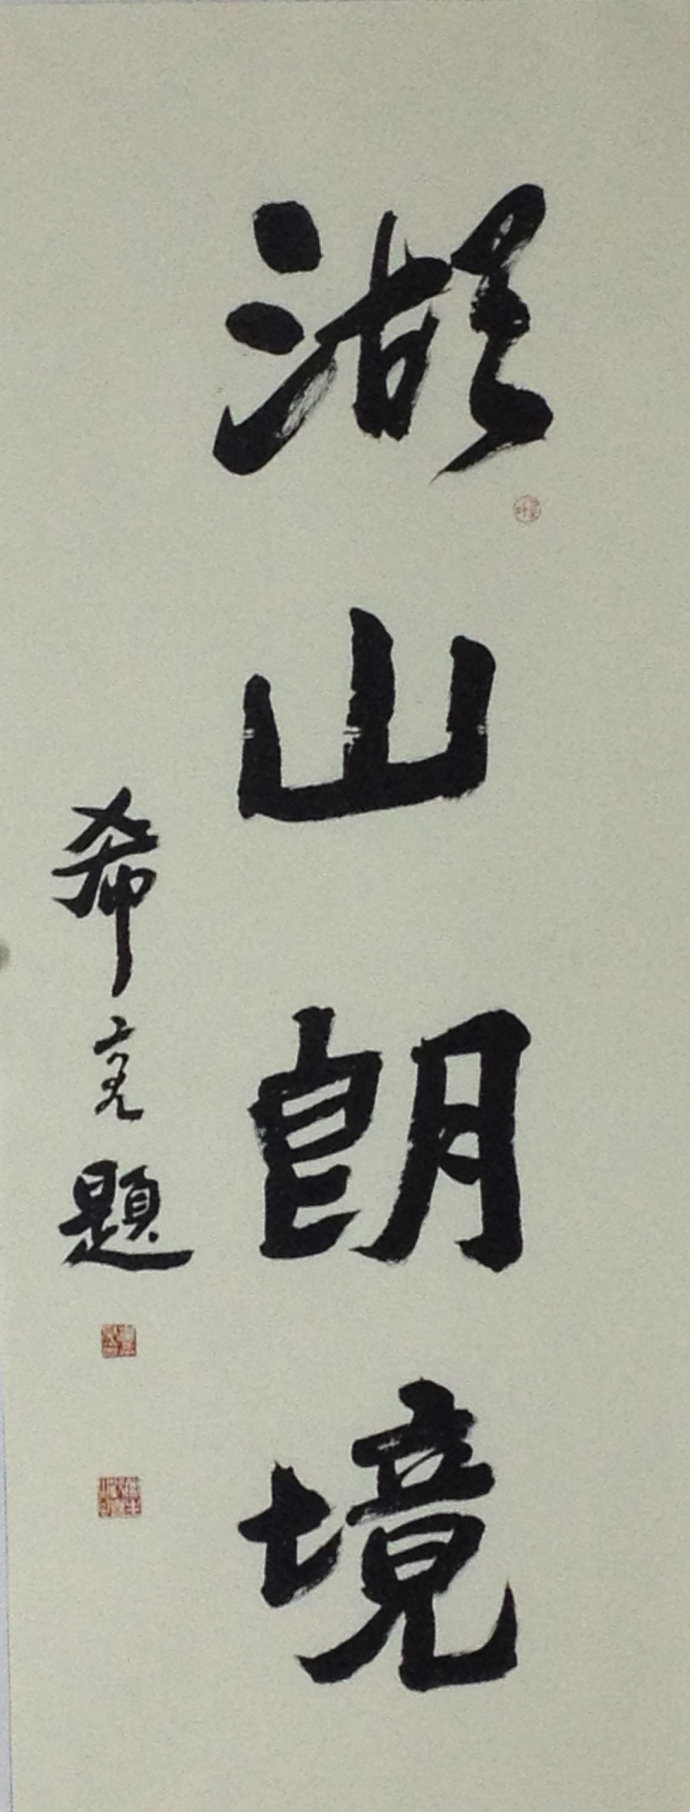 湖山朗境
希亮題